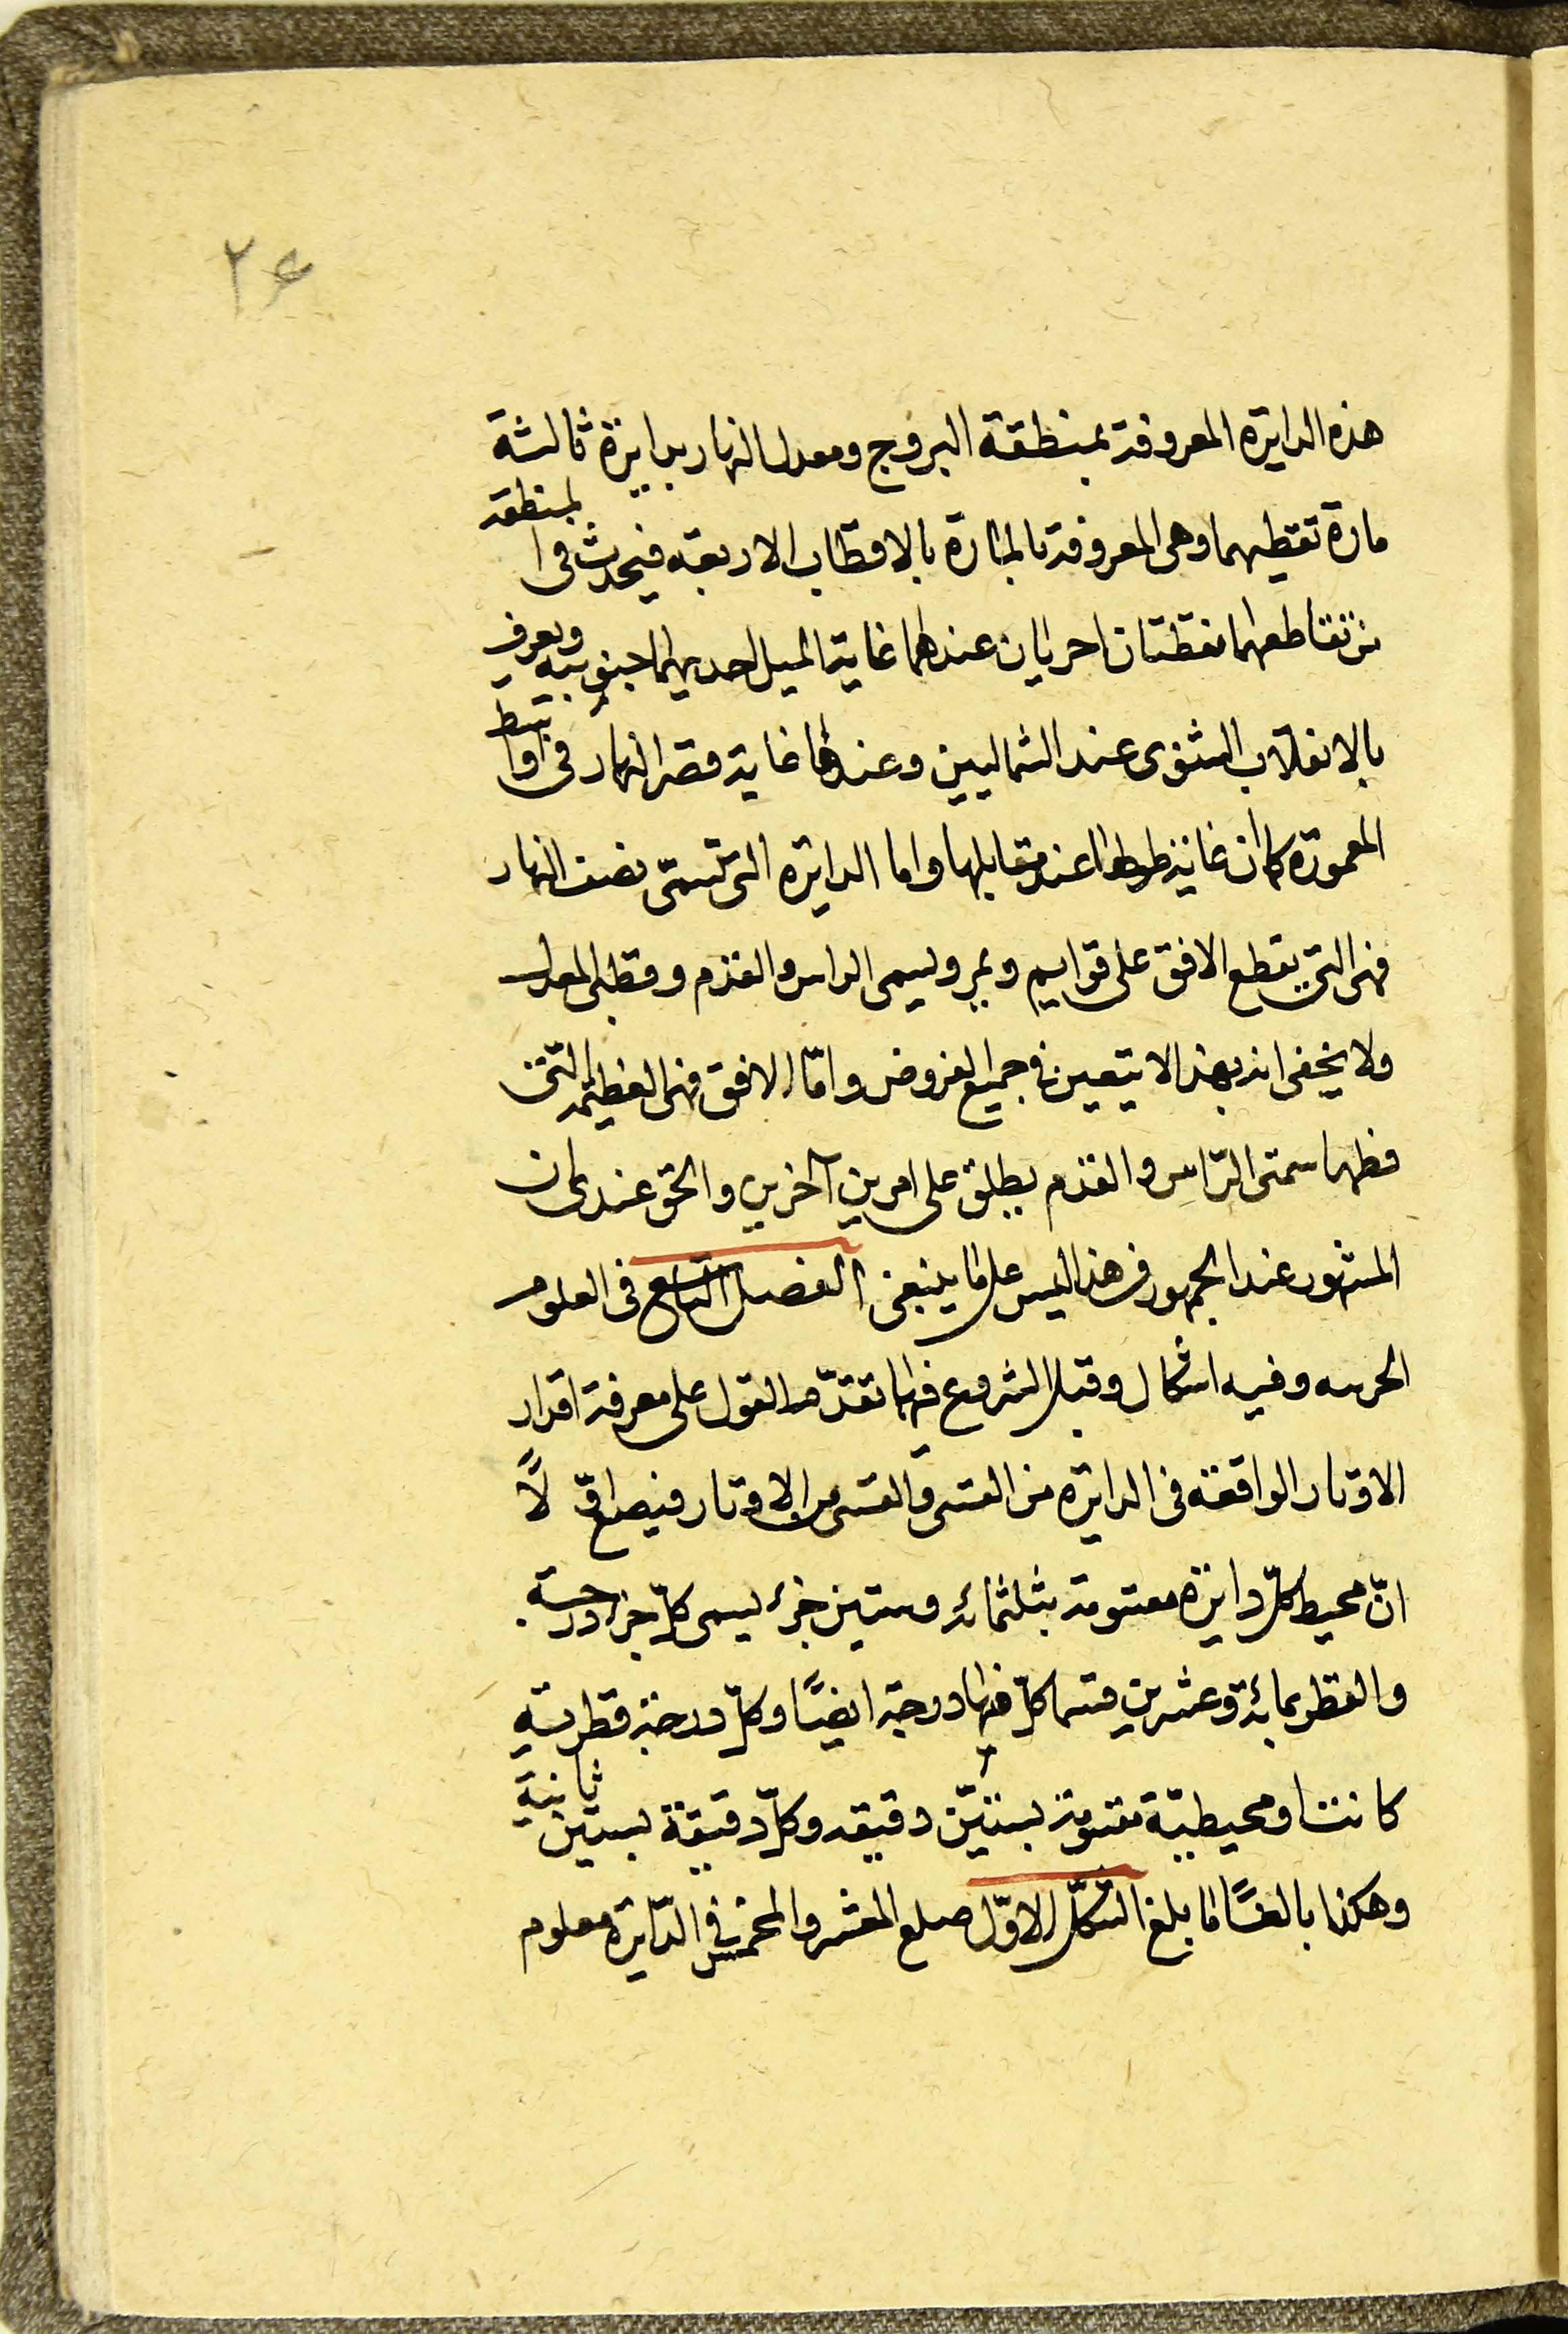 ۲۶
هذه الدايرة المعروفة بمنطقة البروج ومعدل النهار بدايرة ثالثة
مارة تقطبهما وهى المعروفة بالمارة بالاقطاب الاربعه فيحدث فى المنطقة
من تقاطعهما نقطتان اخريان عندهما غاية الميل احديهما جنوبيه ويعرف
بالانقلاب الشتوى عند الشماليين وعندها غاية قصر النهار فى اواسط
المعمورة كما ان غاية طوله عند مقابلها واما الدايرة التى تسمّى نصف النهار
فهى التى يقطع الافق على قوايم ويمر وسمى الراس والقدم وقطبى المعدل
ولا يخفى انه بهذا لا يتعين فى جميع العروض وامّا الافق فهى العظيمة التى
قطبها سمتى الرّاس والقدم يطلق على امرين آخرين والحق عندى ان
المشهور عند الجمهور فى هذا ليس على ما ينبغى الفصل التاسع فى العلوم
وفيه اشكال وقبل الشروع فيها تقدّم القول على معرفة اقدار
الاوتار الواقعة فى الدايرة من القسى والقسى من الاوتار فنصع اوّلاً
انّ محيط كلّ دايرة مقسومة بثلثمائة وستين جزء يسمى كلّ جزء درجة
والقطر بمائة وعشرين قسما كلّ منها درجة ايضًا وكلّ درجة قطرية
كانت او محيطيّة مقسومة بستّين دقيقه وكلّ دقيقة بستين ثانية
وهكذا بالغًا ما بلغ الشكل الاوّل ضلع المعشر والمخمس فى الدّايرة معلوم